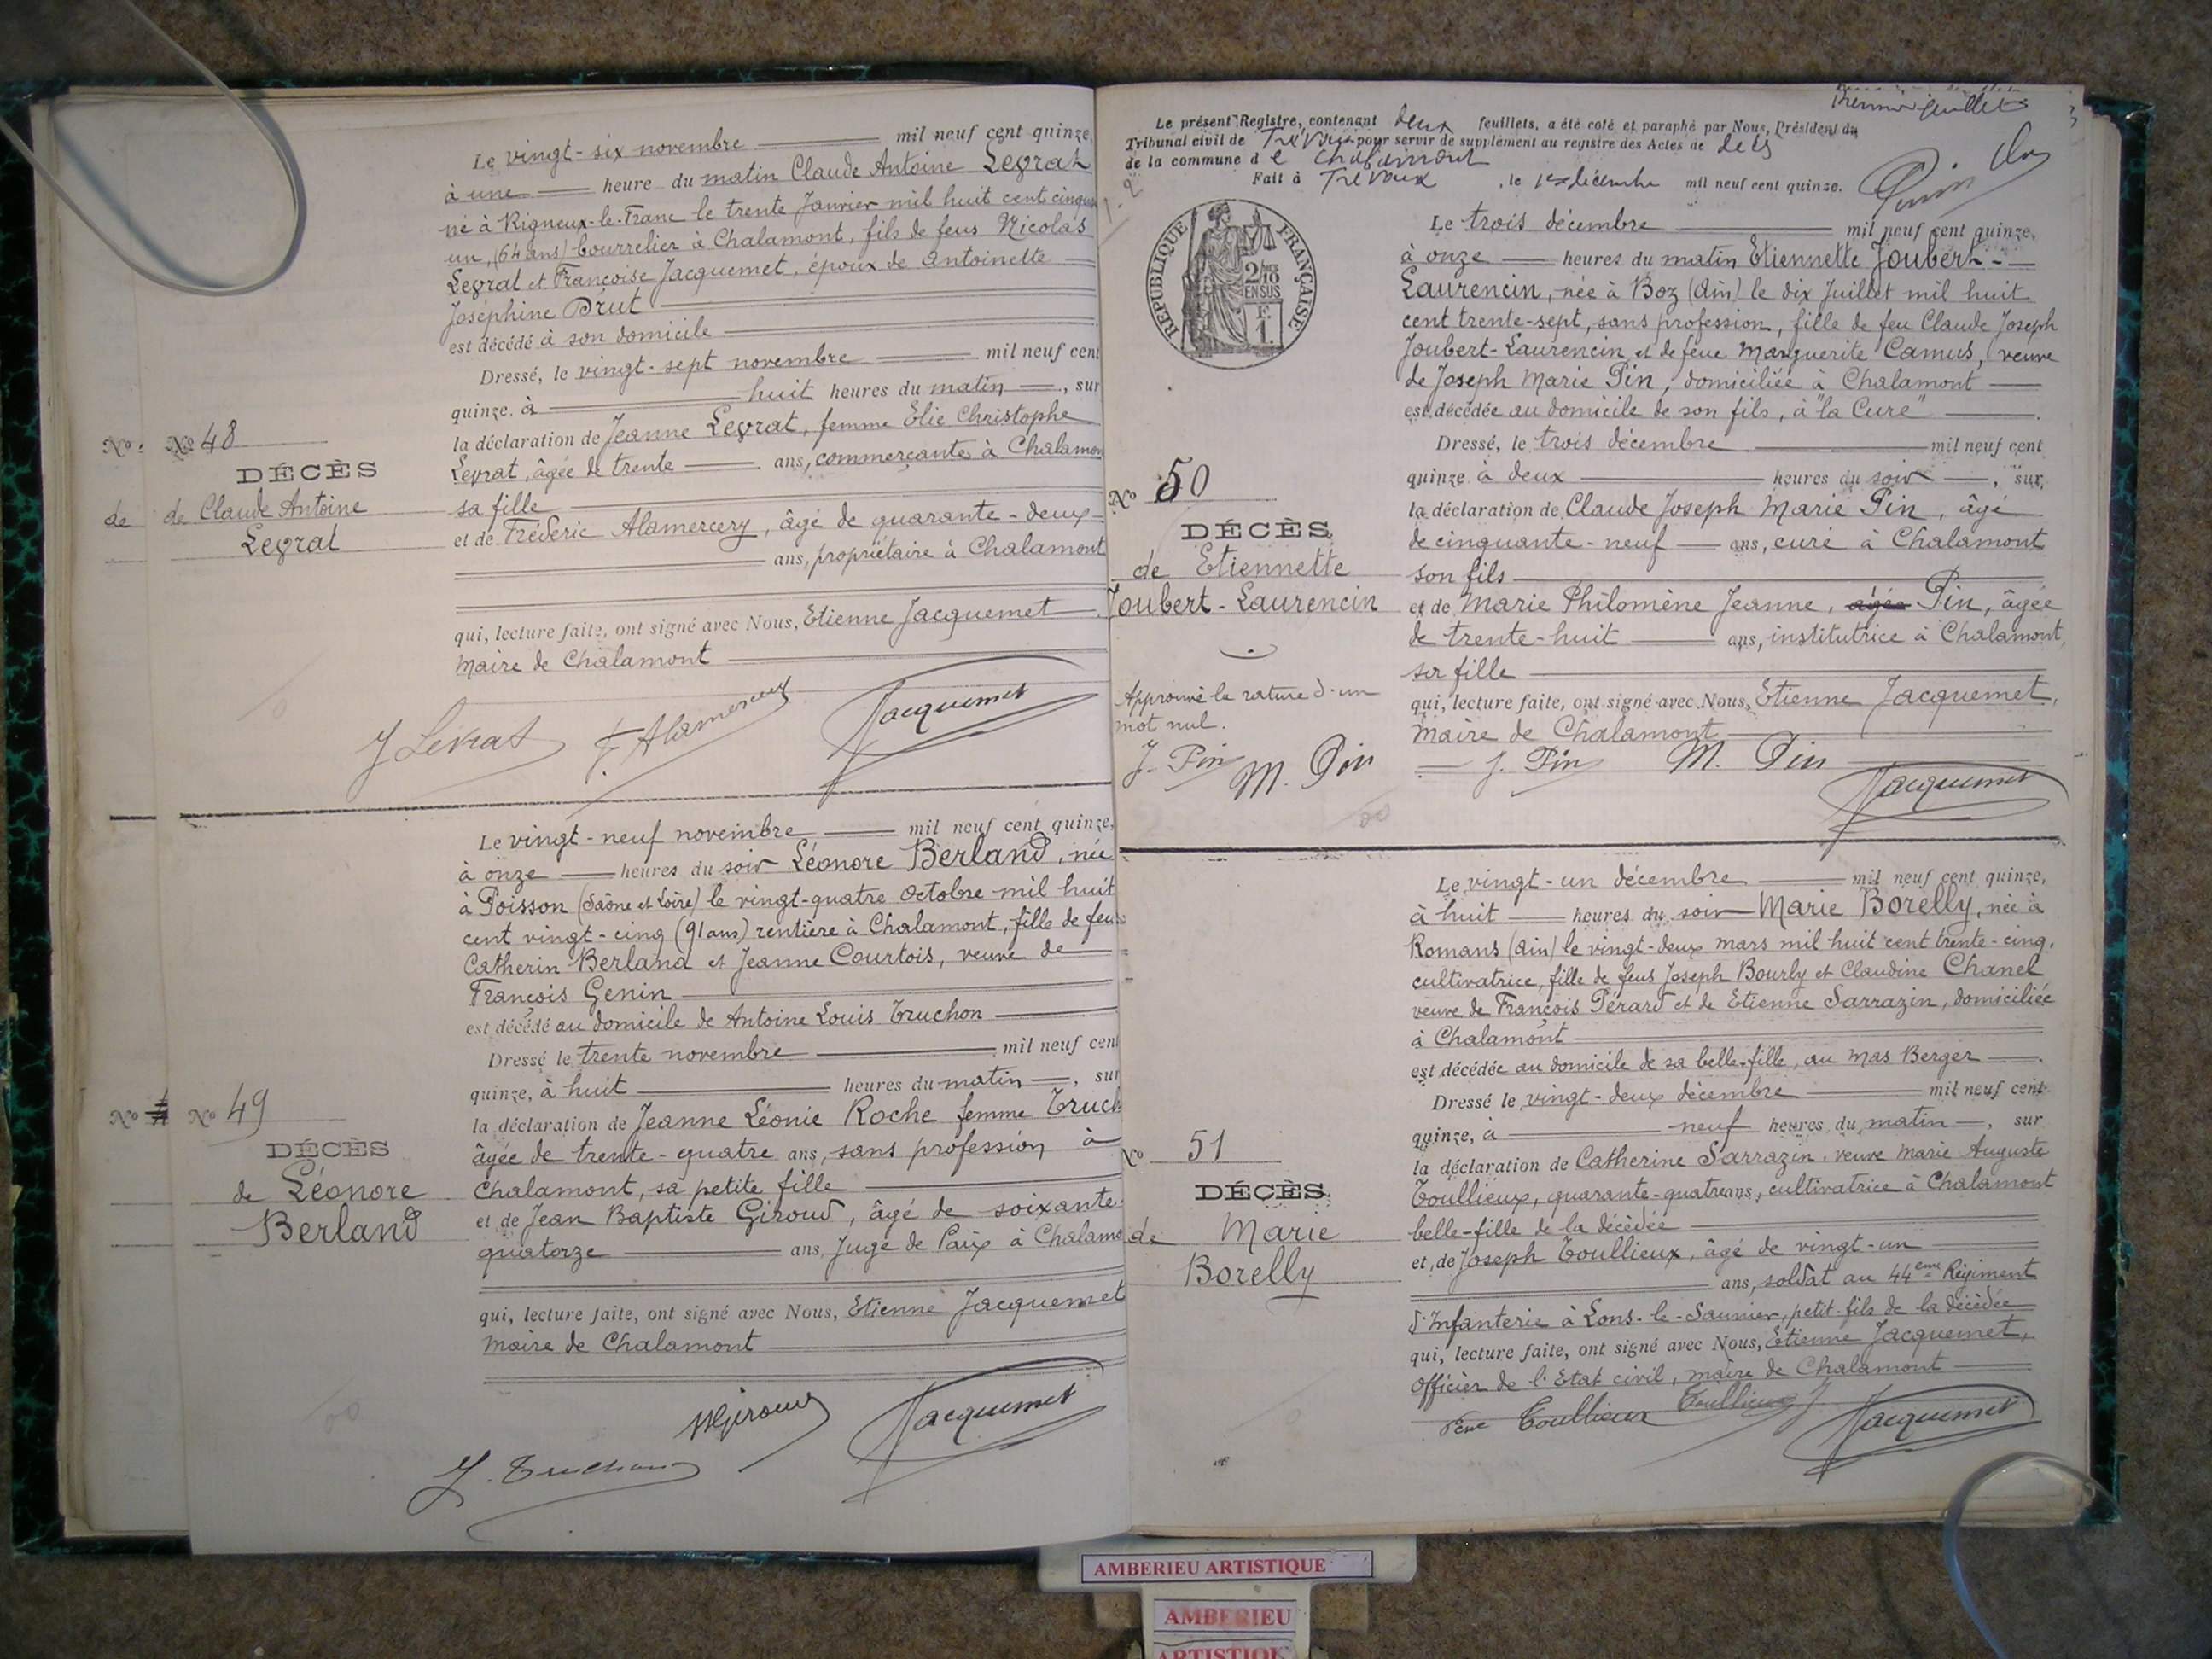 Le vingt-six novembre mil neuf cent quinze,
à une heure du matin Claude Antoine Levrat
né à Rigneux-le-Franc le trente Janvier mil huit cent cinqu
un, (64 ans) bourrelier à Chalamont, fils de feus Nicolas
Levrat et Françoise Jacquemet, époux de Antoinette
Joséphine Brut
est décédé à son domicile
Dressé, le vingt-sept novembre mil neuf cent
quinze, à huit heures du matin, sur
la déclaration de Jeanne Levrat, femme Elie Christophe
Levrat, âgée de trente ans, commerçante à Chalamon
sa fille
et de Fréderic Alamercery, âgé de quarante-deux
ans, propriétaire à Chalamont
qui, lecture faite, ont signé avec Nous, Etienne Jacquemet
maire de Chalamont
J Levrat F. Alamercery Jacquemet
No
de
No 48
DÉCÈS
de Claude Antoine
Levrat
Le vingt-neuf novembre mil neuf cent quinze,
à onze heures du soir Léonore Berland, née
à Poisson (Saône et Loire) le vingt-quatre octobre mil huit
cent vingt-cinq (91 ans) rentière à Chalamont, fille de feu
Catherin Berland et Jeanne Courtois, veuve de
François Genin
est décédé au domicile de Antoine Louis Truchon
Dressé le trente novembre mil neuf cent
quinze, à huit heures du matin, sur
la déclaration de Jeanne Léonie Roche femme Truch
âgée de trente-quatre ans, sans profession à
Chalamont, sa petite fille
et de Jean Baptiste Giroud, âgé de soixante
quatorze ans, Juge de Paix à Chalamo
qui, lecture faite, ont signé avec Nous, Etienne Jacquemet
maire de Chalamont
Giroud Jacquemet
J. Truchon
No
No 49
DÉCÈS
de Léonore
Berland
Premier feuillet
Le présent Registre, contenant deux feuillets, a été coté et paraphé par Nous, Président du
Tribunal civil de Trévoux pour servir de supplément au registre des Actes de décès
de la commune de Chalamont
Fait à Trévoux, le 1er décembre mil neuf cent quinze.
RÉPUBLIQUE FRANÇAISE
2/10
EN SUS
F.
1.
Le trois décembre mil neuf cent quinze,
à onze heures du matin Etiennette Joubert-
Laurencin, née à Boz (Ain) le dix Juillet mil huit
cent trente-sept, sans profession, fille de feu Claude Joseph
Joubert-Laurencin et de feue Marguerite Camus, veuve
de Joseph Marie Pin, domiciliée à Chalamont
est décédée au domicile de son fils, à "la Cure".
Dressé, le trois décembre mil neuf cent
quinze à deux heures du soir, sur
la déclaration de Claude Joseph Marie Pin, âgé
de cinquante-neuf ans, curé à Chalamont
son fils
et de Marie Philomène Jeanne, âgée Pin, âgée
de trente-huit ans, institutrice à Chalamont,
sa fille
qui, lecture faite, ont signé avec Nous, Etienne Jacquemet,
maire de Chalamont
J. Pin M. Pin
Jacquemet
No 50
DÉCÈS
de Etiennette
Joubert-Laurencin
Approuvé la rature d'un
mot nul.
J. Pin M. Pin
Le vingt-un décembre mil neuf cent quinze,
à huit heures du soir Marie Borelly, née à
Romans (Ain) le vingt-deux mars mil huit cent trente-cinq,
cultivatrice, fille de feus Joseph Bourly et Claudine Chanel
veuve de François Pérard et de Etienne Sarrazin, domiciliée
à Chalamont
est décédée au domicile de sa belle-fille, au mas Berger.
Dressé le vingt-deux décembre mil neuf cent
quinze, à neuf heures du matin, sur
la déclaration de Catherine Sarrazin, veuve Marie Auguste
Toullieux, quarante-quatre ans, cultivatrice à Chalamont
belle-fille de la décédée
et de Joseph Toullieux, âgé de vingt-un
ans, soldat au 44eme Régiment
d'Infanterie à Lons-le-Saunier, petit-fils de la décédée
qui, lecture faite, ont signé avec Nous, Etienne Jacquemet,
officier de l'Etat civil, maire de Chalamont
Vve Toullieux Toullieux J Jacquemet
No 51
DÉCÈS
de Marie
Borelly
AMBERIEU ARTISTIQUE
AMBERIEU
ARTISTIQUE